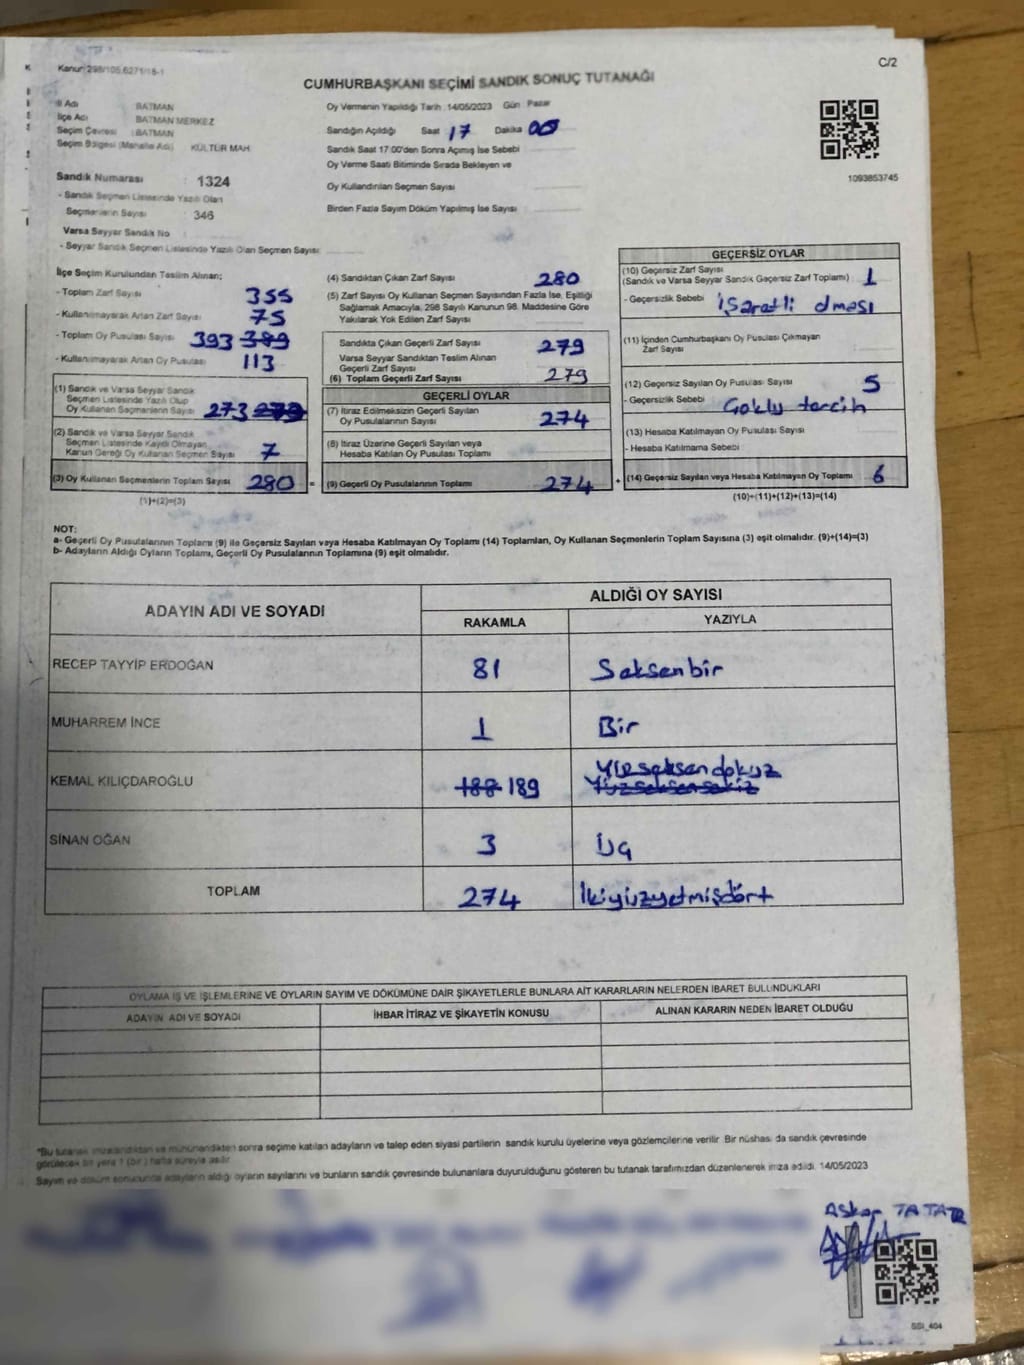 Kanun 298/105,6271/18-1
C/2
CUMHURBAŞKANI SEÇİMİ SANDIK SONUÇ TUTANAĞI
İl Adı BATMAN
İlçe Adı BATMAN MERKEZ
Seçim Çevresi : BATMAN
Seçim Bölgesi (Mahalle Adı) KÜLTÜR MAH.
Sandık Numarası : 1324
- Sandık Seçmen Listesinde Yazılı Olan
Seçmenlerin Sayısı : 346
Varsa Seyyar Sandık No
- Seyyar Sandık Seçmen Listesinde Yazılı Olan Seçmen Sayısı:
Oy Vermenin Yapıldığı Tarih : 14/05/2023 Gün : Pazar
Sandığın Açıldığı Saat 17 Dakika 00
Sandık Saat 17:00'den Sonra Açılmış İse Sebebi
Oy Verme Saati Bitiminde Sırada Bekleyen ve
Oy Kullandırılan Seçmen Sayısı
Birden Fazla Sayım Döküm Yapılmış İse Sayısı
1093853745
İlçe Seçim Kurulundan Teslim Alınan;
- Toplam Zarf Sayısı 355
- Kullanılmayarak Artan Zarf Sayısı 75
- Toplam Oy Pusulası Sayısı 393 389
- Kullanılmayarak Artan Oy Pusulası 113
(1) Sandık ve Varsa Seyyar Sandık
Seçmen Listesinde Yazılı Olup
Oy Kullanan Seçmenlerin Sayısı 273 279
(2) Sandık ve Varsa Seyyar Sandık
Seçmen Listesinde Kayıtlı Olmayan
Kanun Gereği Oy Kullanan Seçmen Sayısı 7
(3) Oy Kullanan Seçmenlerin Toplam Sayısı 280 =
(1)+(2)=(3)
(4) Sandıktan Çıkan Zarf Sayısı 280
(5) Zarf Sayısı Oy Kullanan Seçmen Sayısından Fazla İse, Eşitliği
Sağlamak Amacıyla, 298 Sayılı Kanunun 98. Maddesine Göre
Yakılarak Yok Edilen Zarf Sayısı
Sandıkta Çıkan Geçerli Zarf Sayısı 279
Varsa Seyyar Sandıktan Teslim Alınan
Geçerli Zarf Sayısı
(6) Toplam Geçerli Zarf Sayısı 279
GEÇERLİ OYLAR
(7) İtiraz Edilmeksizin Geçerli Sayılan
Oy Pusulalarının Sayısı 274
(8) İtiraz Üzerine Geçerli Sayılan veya
Hesaba Katılan Oy Pusulası Toplamı
(9) Geçerli Oy Pusulalarının Toplamı 274 +
GEÇERSİZ OYLAR
(10) Geçersiz Zarf Sayısı
(Sandık ve Varsa Seyyar Sandık Geçersiz Zarf Toplamı) 1
- Geçersizlik Sebebi işaratli olması
(11) İçinden Cumhurbaşkanı Oy Pusulası Çıkmayan
Zarf Sayısı
(12) Geçersiz Sayılan Oy Pusulası Sayısı 5
- Geçersizlik Sebebi Çoklu tercih
(13) Hesaba Katılmayan Oy Pusulası Sayısı
- Hesaba Katılmama Sebebi
(14) Geçersiz Sayılan veya Hesaba Katılmayan Oy Toplamı 6
(10)+(11)+(12)+(13)=(14)
NOT:
a- Geçerli Oy Pusulalarının Toplamı (9) ile Geçersiz Sayılan veya Hesaba Katılmayan Oy Toplamı (14) Toplamları, Oy Kullanan Seçmenlerin Toplam Sayısına (3) eşit olmalıdır. (9)+(14)=(3)
b- Adayların Aldığı Oyların Toplamı, Geçerli Oy Pusulalarının Toplamına (9) eşit olmalıdır.
ADAYIN ADI VE SOYADI
ALDIĞI OY SAYISI
RAKAMLA YAZIYLA
RECEP TAYYİP ERDOĞAN 81 Seksenbir
MUHARREM İNCE 1 Bir
KEMAL KILIÇDAROĞLU 188 189 Yüzseksendokuz
Yüzseksensekiz
SİNAN OĞAN 3 Üç
TOPLAM 274 İkiyüzyetmişdört
OYLAMA İŞ VE İŞLEMLERİNE VE OYLARIN SAYIM VE DÖKÜMÜNE DAİR ŞİKAYETLERLE BUNLARA AİT KARARLARIN NELERDEN İBARET BULUNDUKLARI
ADAYIN ADI VE SOYADI İHBAR İTİRAZ VE ŞİKAYETİN KONUSU ALINAN KARARIN NEDEN İBARET OLDUĞU
*Bu tutanak imzalandıktan ve mühürlendikten sonra seçime katılan adayların ve talep eden siyasi partilerin sandık kurulu üyelerine veya gözlemcilerine verilir. Bir nüshası da sandık çevresinde
görülecek bir yere 1 (bir) hafta süreyle asılır.
Sayım ve döküm sonucunda adayların aldığı oyların sayılarını ve bunların sandık çevresinde bulunanlara duyurulduğunu gösteren bu tutanak tarafımızdan düzenlenerek imza edildi. 14/05/2023
TATAR
SSI_404